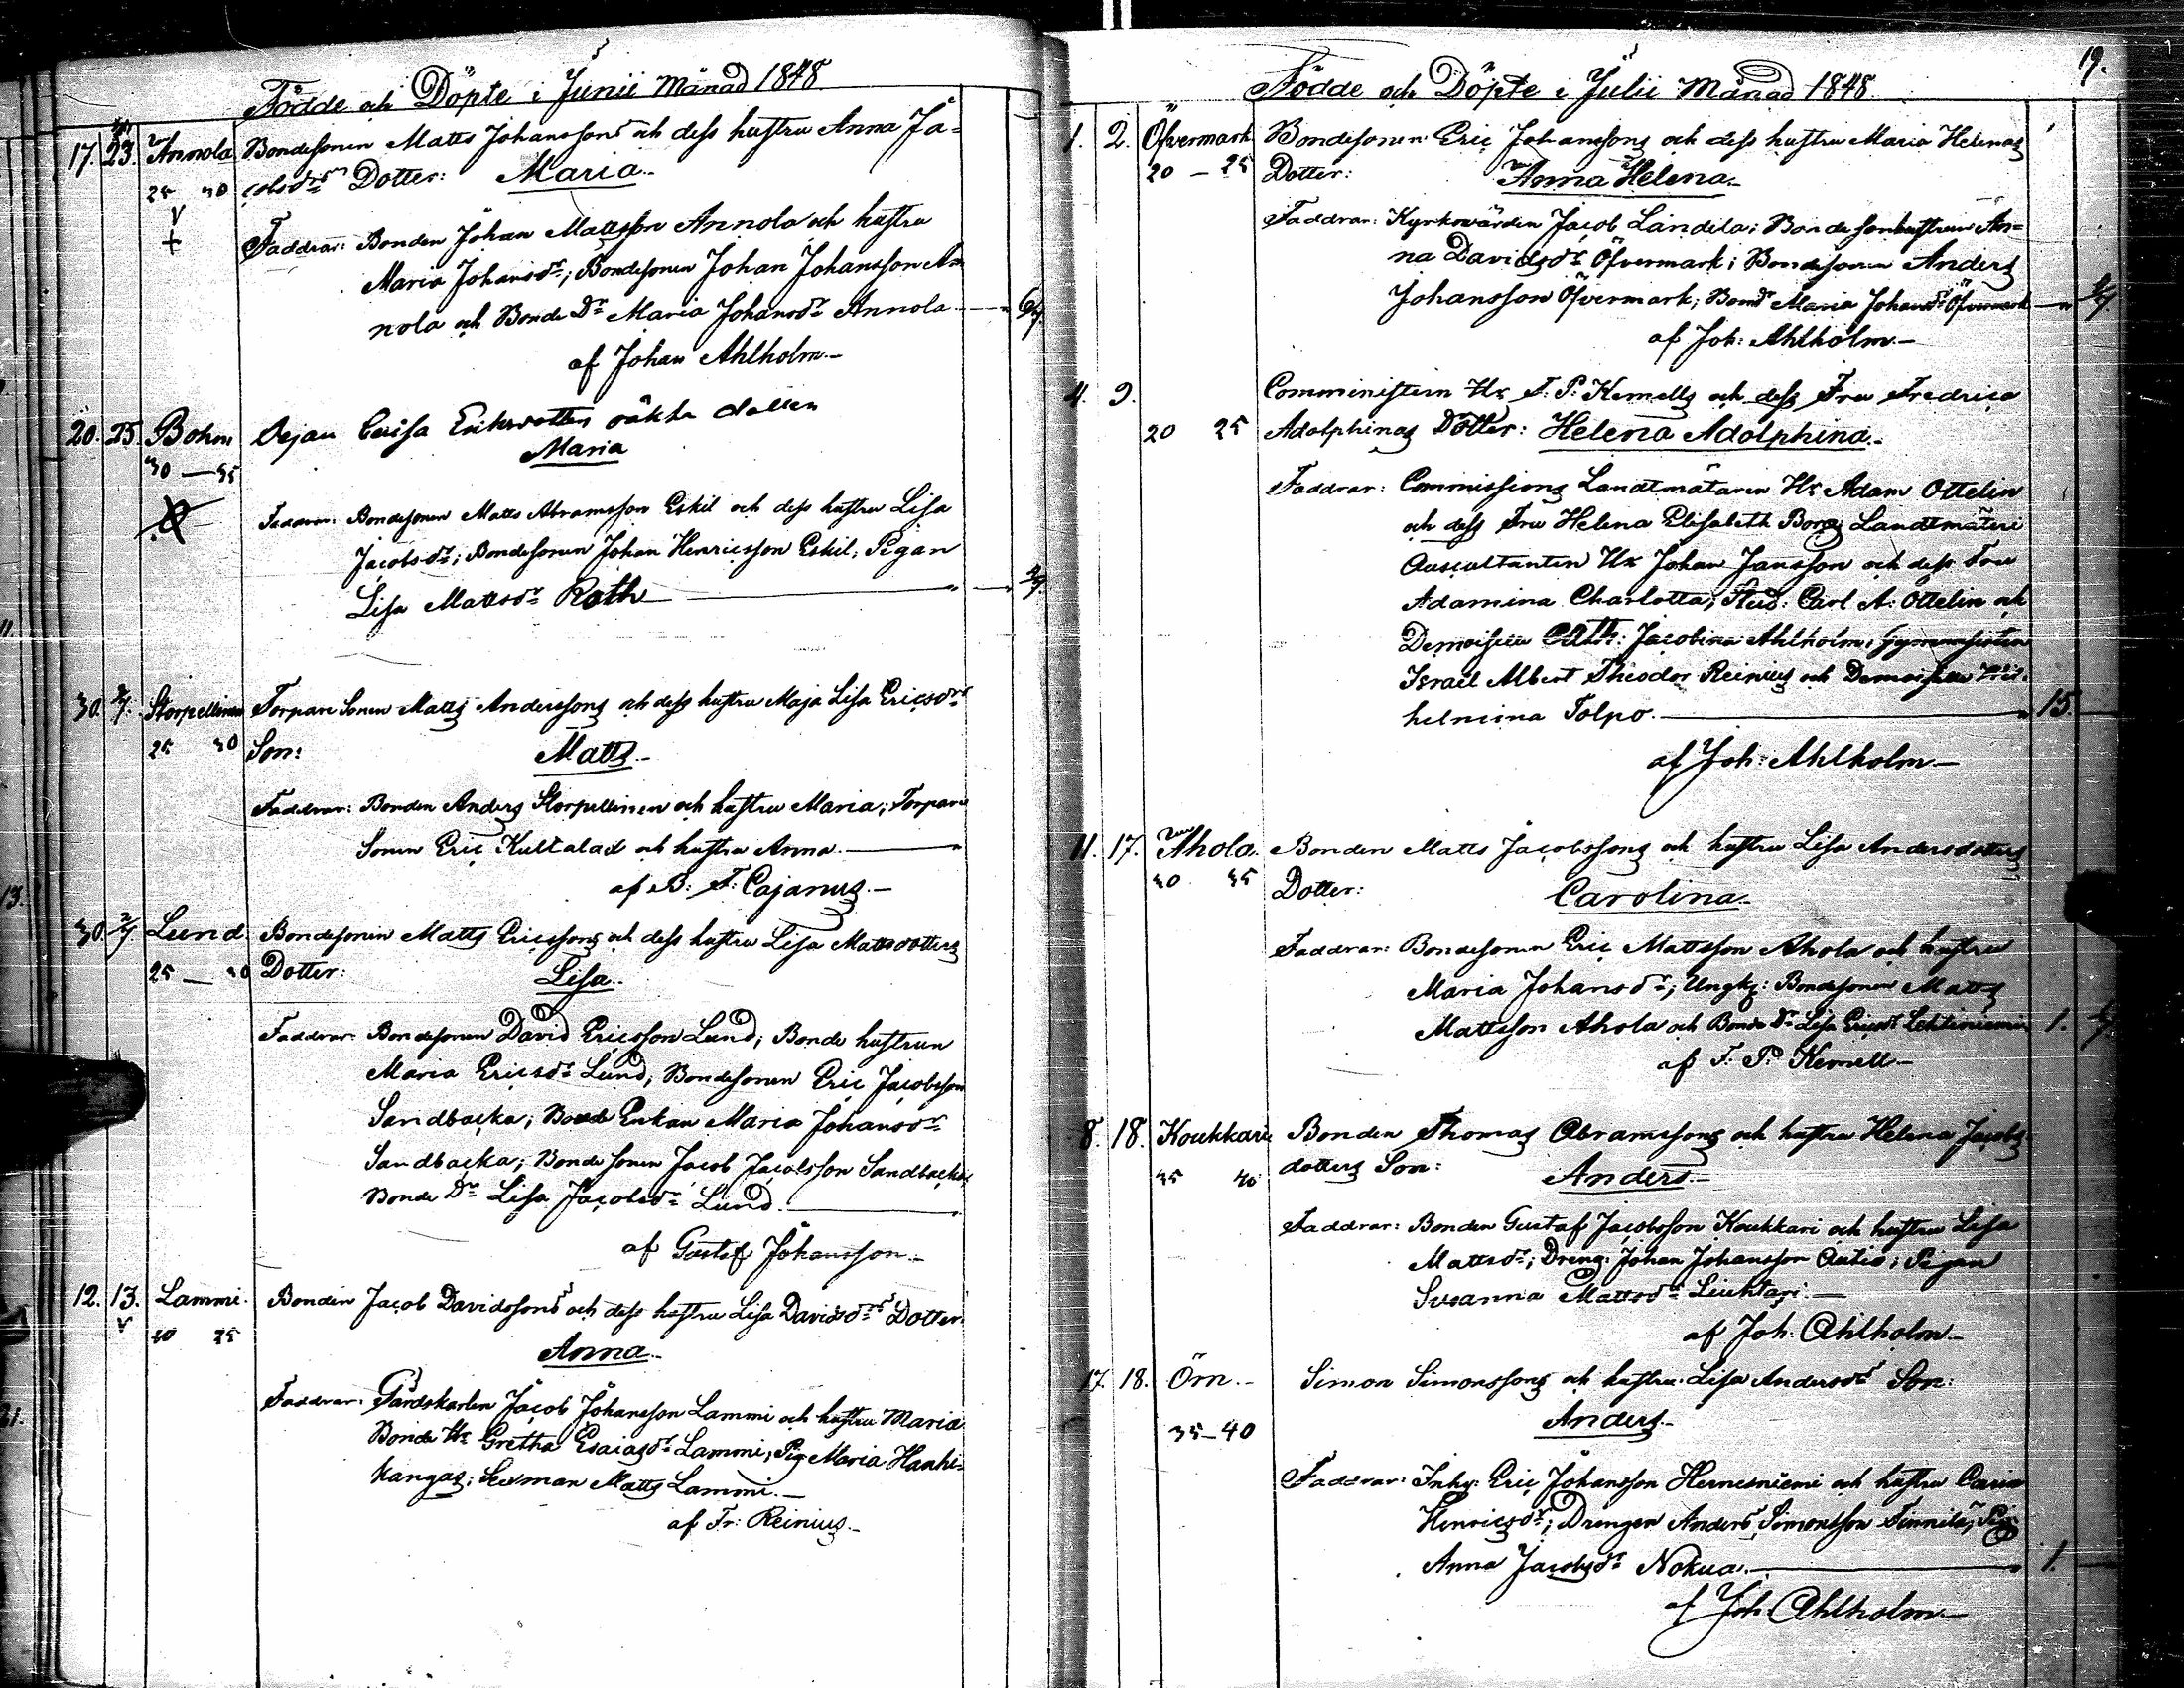 Födde och Döpte i Junii Månad 1848
17. 23. Annola Bondesonen Matts Johanssons och dess hustru Anna Ja=
25 30 cobsdrs Dotter: Maria.
Faddrar: Bonden Johan Mattsson Annola och hustru
Maria Johansdr; Bondesonen Johan Johansson An
nola och Bonde Dr Maria Johansdr Annola
af Johan Ahlholm.
20. 25. Bohm Pejan Caisa Eriksdotters oäkta dotter
30 — 35 Maria
Faddrar: Bondesonen Matts Abramsson Eskil och dess hustru Lisa
Jacobsdr; Bondesonen Johan Henricsson Eskil; Pigan
Lisa Mattsdr Roth
30. 2/7. Storpellinen Torpare Sonen Matts Anderssons och dess hustru Maja Lisa Ericsdrs
25 30 Son: Matts.
Faddrar: Bonden Anders Storpellinen och hustru Maria; Torpare
Sonen Eric Kultalad och hustru Anna.
af B. F. Cajanus.
30. 2/7 Lund Bondesonen Matts Ericssons och dess hustru Lisa Mattsdotters
25 — 30 Dotter: Lisa.
Faddrar: Bondesonen David Ericsson Lund; Bonde hustrun
Maria Ericsdr Lund; Bondesonen Eric Jacobsson
Sandbacka; Bonde Enkan Maria Johansdr
Sandbacka; Bonde sonen Jacob Jacobsson Sandbacka;
Bonde Dr Lisa Jacobsdr Lund.
af Gustaf Johansson.
12. 13. Lammi. Bonden Jacob Davidssons och dess hustru Lisa Davidsdrs Dotter
20 25 Anna.
Faddrar: Gårdskarlen Jacob Johansson Lammi och hustru Maria
Bonde Hr Gretha Esaiasdr Lammi; Pig. Maria Hanhi=
kangas; Sexman Matts Lammi.
af Fr: Reinius.
19.
Födde och Döpte i Julii Månad 1848.
1. 2. Öfvermark Bondesonen Eric Johanssons och dess hustru Maria Helenas
20 — 25 Dotter: Anna Helena.
Faddrar: Kyrkovärden Jacob Landila; Bondesonhustrun An=
na Davidsdr Öfvermark; Bondesonen Anders
Johansson Öfvermark; Bondr Maria Johansdr Öfvermark
af Joh: Ahlholm.
4. 9. Comministern Hr F. P. Kemells och dess Fru Fredrica
20 25 Adolphinas Dotter: Helena Adolphina.
Faddrar: Commissions Landtmätaren Hr Adam Ottelin
och dess Fru Helena Elisabeth Borg; Landtmäteri
Auscultanten Hr Johan Jansson och dess Fru
Adamina Charlotta; Stud: Carl A: Ottelin och
Demoiselle Cath: Jacobina Ahlholm; Gymnasisten
Israel Albert Theodor Reinius och Demoiselle Wil
helmina Tolpo. 15.
af Joh: Ahlholm
11. 17. Ahola. Bonden Matts Jacobssons och hustru Lisa Andersdotters
30 35 Dotter: Carolina.
Faddrar: Bondesonen Eric Mattsson Ahola och hustru
Maria Johansdr; Ungk: Bondesonen Matts
Mattsson Ahola och Bonde Dr Lisa Ericsdr Lehtiniemi 1.
af F. P. Kemell
8. 18. Koukkari Bonden Thomas Abramssons och hustru Helena Jacobs
35 40 dotters Son: Anders.
Faddrar: Bonden Gustaf Jacobsson Koukkari och hustru Lisa
Mattsdr; Dreng: Johan Johansson Autio; Pigan
Susanna Mattsdr Liuhtari.
af Joh. Ahlholm
17. 18. Örn. Simon Simonssons och hustru Lisa Andersdrs Son:
35-40 Anders.
Faddrar: Inhy: Eric Johansson Hernesniemi och hustru Caisa
Henricsdr; Drengen Anders Simonsson Finnilä; Pig
Anna Jacobsdr Nokua. 1.
af Joh. Ahlholm